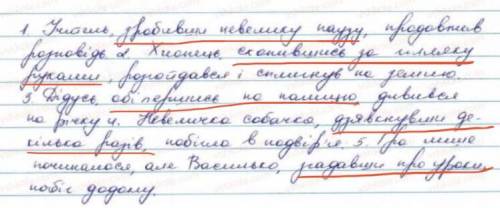 1. Учитель, зробивши невелику паузу, продовжив
розповідь. 2. Хлопець, схопившись за гілляку
руками, розгойдався і сплигнув на землю.
3. Дідусь, обіпершись на палицю дивився
на річку 4. Невеличка собачка, дзявкнувши де-
кілька разів, побігла в подвір'я. 5. Гра лише
починалося, але Василько, згадавши про уроки,
побіг додому.